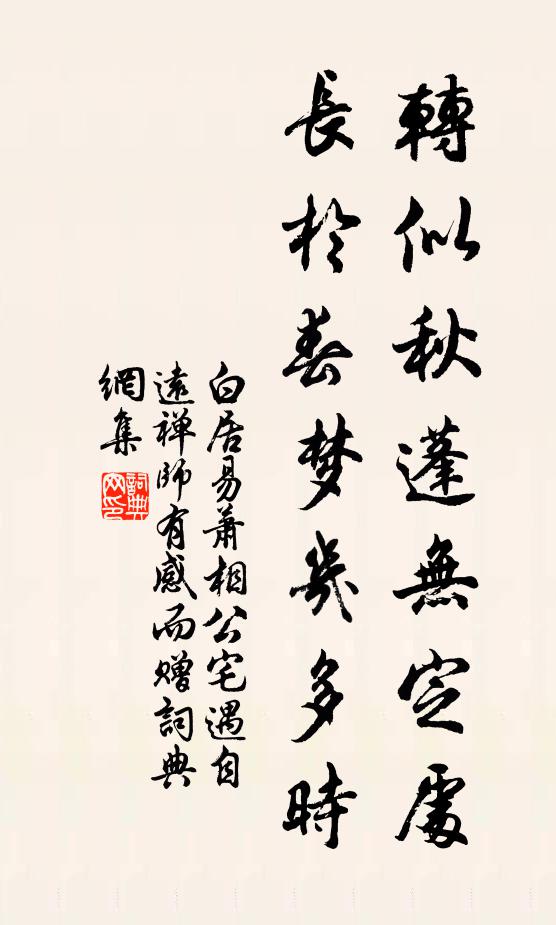 轉似秋蓬無定處
長於春梦幾多時
白居易蕭相公宅遇自
遠禅師有感而贈詞典
網集
詞典网印